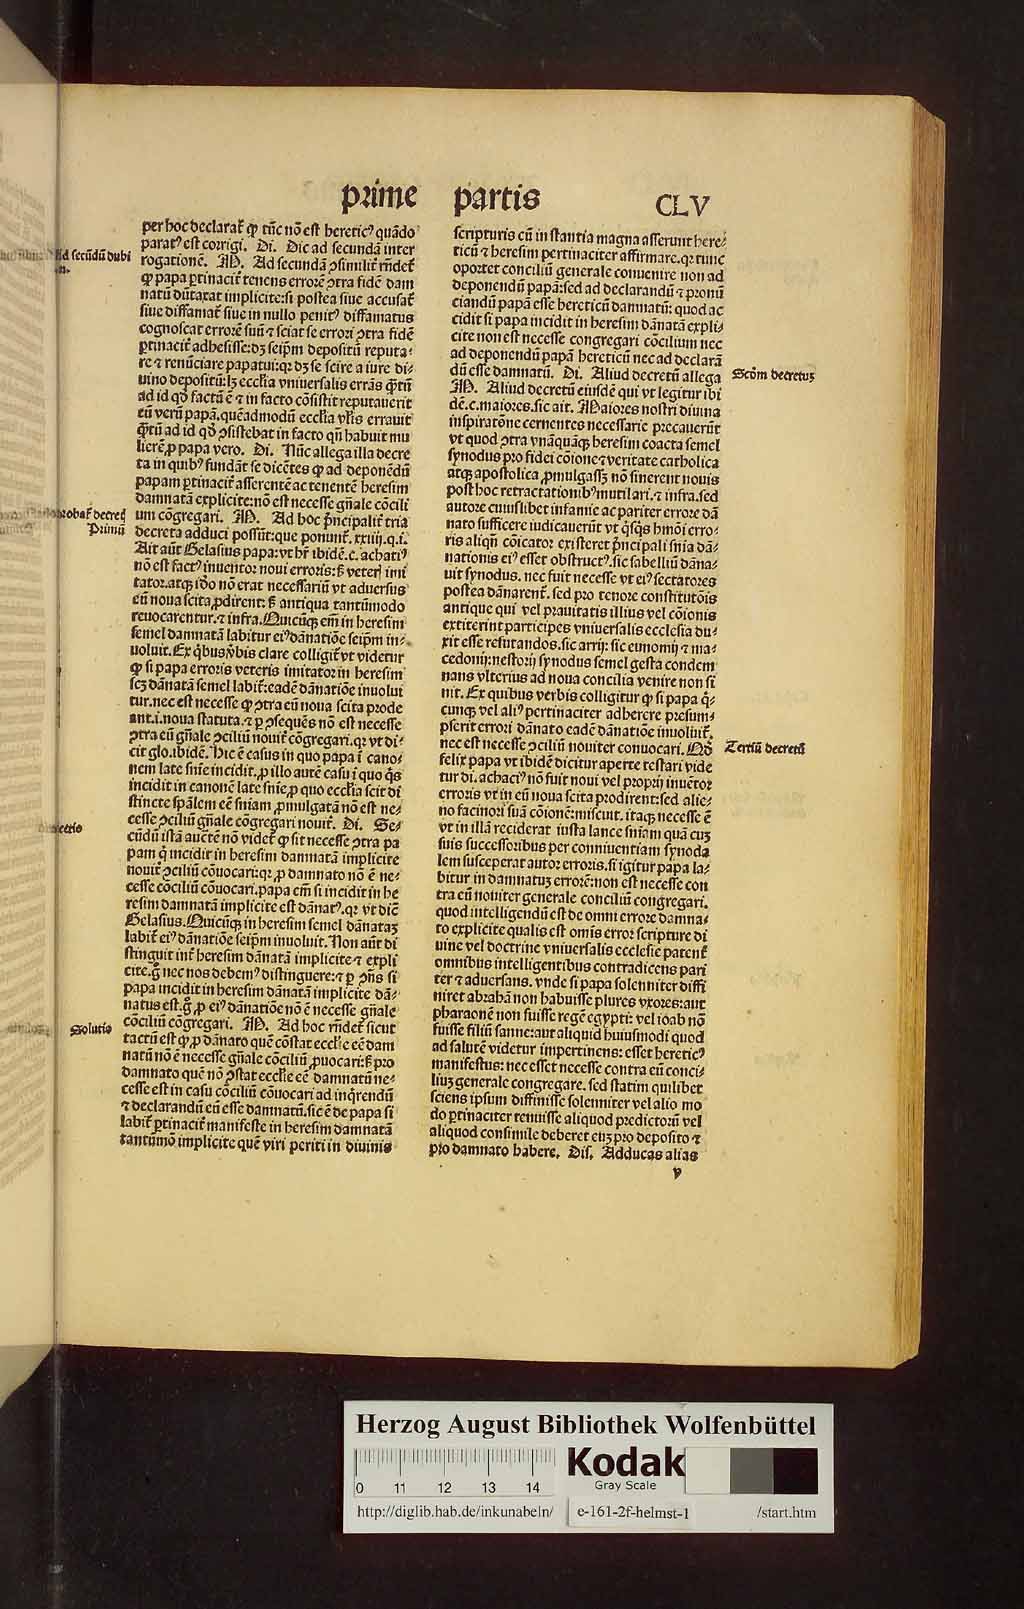 prime partis CLV
per hoc declarat̄ ꝙ tūc nō est heretic⁹ quādo
parat⁹ est corrigi. Di. Dic ad secundā inter
rogationē. M. Ad secundā ꝯsimilit̄ rn̄det̄
ꝙ papa ꝑtinacit̄ tenens errorē ꝯtra fidē dam
natū dūtaxat implicite: si postea siue accusat̄
siue diffamat̄ siue in nullo penit⁹ diffamatus
cognoscat errorē suū ⁊ sciat se errori ꝯtra fidē
ꝑtinacit̄ adhesisse: dꝫ seip̄m depositū reputa-
re ⁊ renūciare papatui: qꝛ dꝫ se scire a iure di-
uino depositū: lꝫ eccl̄ia vniuersalis errās ꝙ̄tū
ad id qd̄ factū ē ⁊ in facto cōsistit reputauerit
eū verū papā. quēadmodū eccl̄ia vl̄is errauit
ꝙ̄tū ad id qd̄ ꝯsistebat in facto qn̄ habuit mu
lierē ꝓ papa vero. Di. Nūc allega illa decre
ta in quib⁹ fundāt se dicētes ꝙ ad deponēdū
papam ꝑtinacit̄ asserentē ac tenentē heresim
damnatā explicite: nō est necesse gn̄ale cōcili
um cōgregari. M. Ad hoc p̄ncipalit̄ tria
decreta adduci possūt: que ponunt̄. xxiiij. q. i.
Ait aūt Gelasius papa: vt hr̄ ibidē. c. achati⁹
nō est fact⁹ inuentor noui erroris: s̄ꝫ veter̄ imi
tator. atqꝫ iō nō erat necessariū vt aduersus
eū noua scita ꝓdirent: s̄ꝫ antiqua tantūmodo
reuocarentur. ⁊ infra. Quicūqꝫ em̄ in heresim
semel damnatā labitur ei⁹ dānatiōe seip̄m in-
uoluit. Ex q̄bus v̄bis clare colligit̄ vt videtur
ꝙ si papa erroris veteris imitator in heresim
scꝫ dānatā semel labit̄: eadē dānatiōe inuolui
tur. nec est necesse ꝙ ꝯtra eū noua scita prode
ant. i. noua statuta. ⁊ ꝑ ꝯsequēs nō est necesse
ꝯtra eū gn̄ale ꝯciliū nouit̄ cōgregari. qꝛ vt di-
cit glo. ibidē. Hic ē casus in quo papa ī cano-
nem late sn̄ie incidit. ꝓ illo autē casu ī quo q̄s
incidit in canonē late sn̄ie, ꝓ quo eccl̄ia scit di
stincte sp̄alem eē sn̄iam ꝓmulgatā nō est ne-
cesse ꝯciliū gn̄ale cōgregari nouit̄. Di. Se-
cūdū istā auctē nō videt̄ ꝙ sit necesse ꝯtra pa
pam q̄ incidit in heresim damnatā implicite
nouit̄ ꝯciliū cōuocari: qꝛ ꝓ damnato nō ē ne-
cesse cōciliū cōuocari. papa em̄ si incidit in he
resim damnatā implicite est dānat⁹. qꝛ vt dic̄
Gelasius. Quicūqꝫ in heresim semel dānataꝫ
labit̄ ei⁹ dānatiōe seip̄m inuoluit. Non aūt di
stinguit int̄ heresim dānatā implicite ⁊ expli
cite. gͦ nec nos debem⁹ distinguere: ⁊ ꝑ ꝯn̄s si
papa incidit in heresim dānatā implicite dā-
natus est. gͦ ꝓ ei⁹ dānatiōe nō ē necesse gn̄ale
cōciliū cōgregari. M. Ad hoc rn̄det̄ sicut
tactū est ꝙ ꝓ dānato quē cōstat eccl̄ie eē dam
natū nō ē necesse gn̄ale cōciliū ꝓuocari: s̄ꝫ pro
damnato quē nō ꝯstat eccl̄ie eē damnatū ne-
cesse est in casu cōciliū cōuocari ad inq̄rendū
⁊ declarandū eū esse damnatū. sic ē de papa si
labit̄ ꝑtinacit̄ manifeste in heresim damnatā
tantūmō implicite quē viri periti in diuinis
scripturis cū in stantia magna asserunt here-
ticū ⁊ heresim pertinaciter affirmare. qꝛ tunc
oportet conciliū generale conuenire non ad
deponendū papā: sed ad declarandū ⁊ pronū
ciandū papā esse hereticū damnatū: quod ac
cidit si papa incidit in heresim dānatā expli-
cite non est necesse congregari cōcilium nec
ad deponendū papā hereticū nec ad declarā
dū esse damnatū. Di. Aliud decretū allega
M. Aliud decretū eiusdē qui vt legitur ibi
dē. c. maiores. sic ait. Maiores nostri diuina
inspiratōne cernentes necessarie precauerūt
vt quod ꝯtra vnāquāqꝫ heresim coacta semel
synodus pro fidei cōione ⁊ veritate catholica
atqꝫ apostolica ꝓmulgassꝫ nō sinerent nouis
post hoc retractationib⁹ mutilari. ⁊ infra. sed
autore cuiuslibet infamie ac pariter errore dā
nato sufficere iudicauerūt vt q̄sq̄s hmōi erro-
ris aliqn̄ cōicator existeret p̄ncipali sn̄ia dā-
nationis ei⁹ esset obstruct⁹. sic sabelliū dāna-
uit synodus. nec fuit necesse vt ei⁹ sectatores
postea dānarent̄. sed pro tenore constitutōis
antique qui vel prauitatis illius vel cōionis
extiterint participes vniuersalis ecclesia du-
xit esse refutandos. sic arrij: sic eunomij ⁊ ma-
cedonij: nestorij synodus semel gesta condem
nans vlterius ad noua concilia venire non si
nit. Ex quibus verbis colligitur ꝙ si papa q̄-
cunqꝫ vel ali⁹ pertinaciter adherere presum-
pserit errori dānato eadē dānatiōe inuoluit̄.
nec est necesse ꝯciliū nouiter conuocari. Nō
felix papa vt ibidē dicitur aperte testari vide
tur di. achaci⁹ nō fuit noui vel proprij inuētor
erroris vt in eū noua scita prodirent: sed alie-
no facinori suā cōionē: miscuit. itaqꝫ necesse ē
vt in illā reciderat iusta lance sniam quā cuꝫ
suis successoribus per conniuentiam synoda
lem susceperat autor erroris. si igitur papa la-
bitur in damnatuꝫ errorē: non est necesse con
tra eū nouiter generale conciliū congregari.
quod intelligendū est de omni errore damna-
to explicite qualis est omīs error scripture di
uine vel doctrine vniuersalis ecclesie patent̄
omnibus intelligentibus contradicens pari
ter ⁊ aduersans. vnde si papa solenniter diffi
niret abrahā non habuisse plures vxores: aut
pharaonē non fuisse regē egypti: vel ioab nō
fuisse filiū saruie: aut aliquid huiusmodi quod
ad salutē videtur impertinens: esset heretic⁹
manifestus: nec esset necesse contra eū conci-
liuꝫ generale congregare. sed statim quilibet
sciens ipsum diffinisse solenniter vel alio mo
do ꝑtinaciter tenuisse aliquod predictorū vel
aliquod consimile deberet euꝫ pro deposito ⁊
pro damnato habere. Dis. Adducas alias
v
Ad secūdū dubi
Primū
Solutio
Scōm decretuꝫ
Tertiū decretū
Herzog August Bibliothek Wolfenbüttel
0 11 12 13 14
Kodak
Gray Scale
http://diglib.hab.de/inkunabeln/ e-161-2f-helmst-1 /start.htm